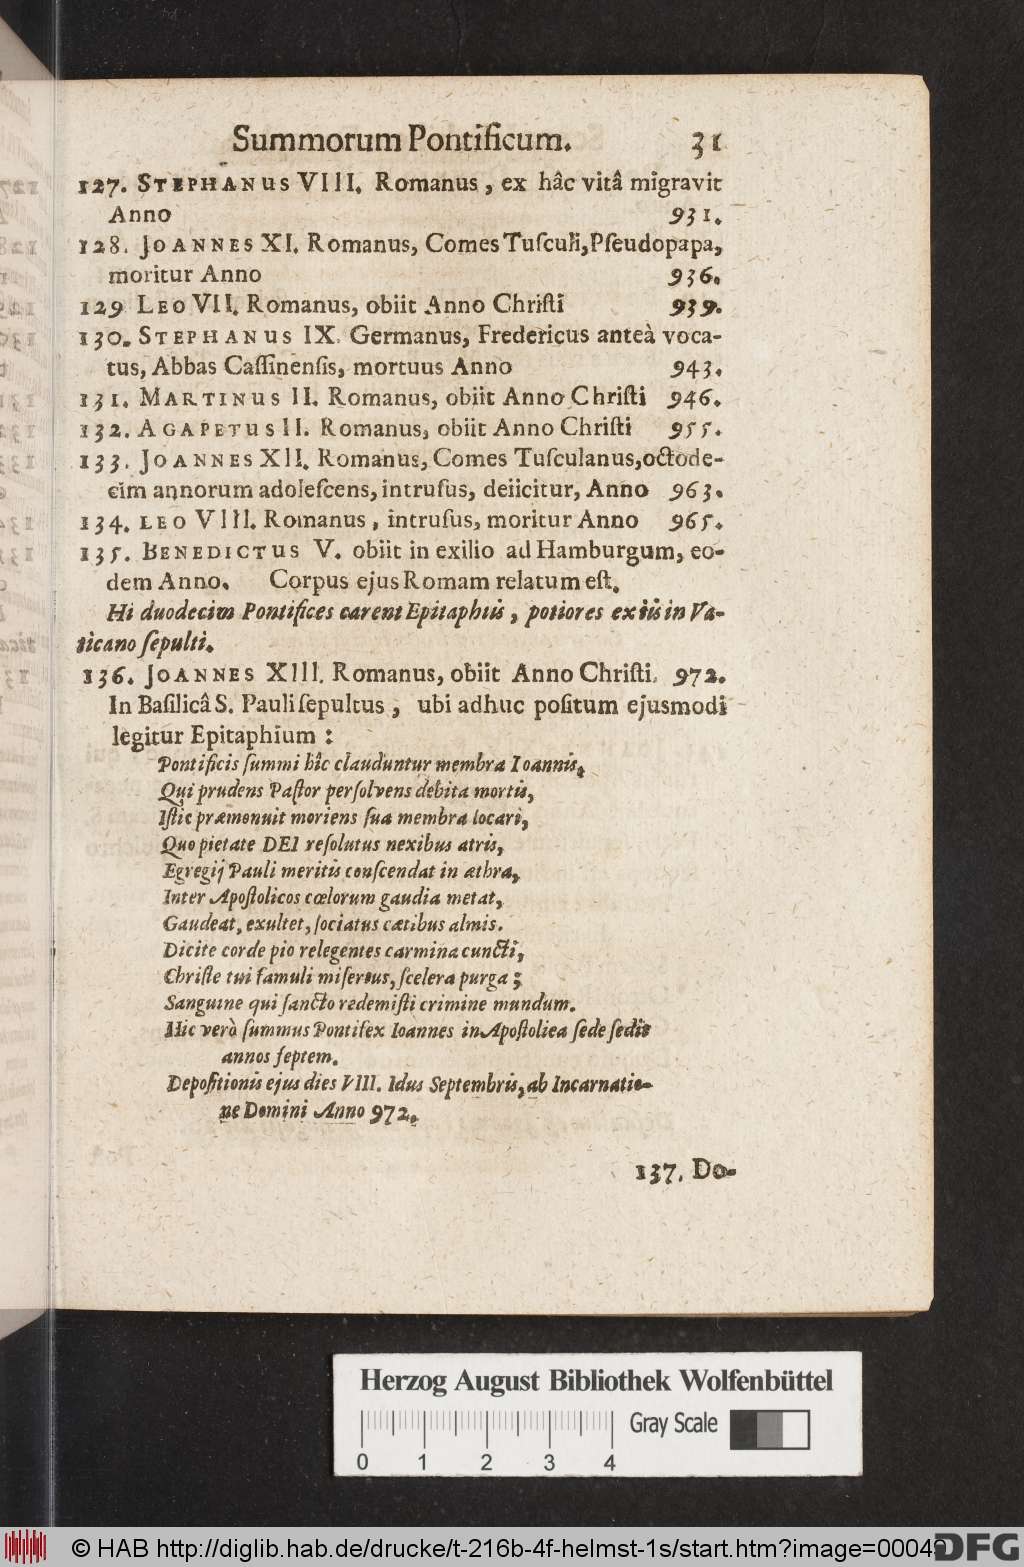 Summorum Pontificum. 31
127. STEPHANUS VIII. Romanus, ex hâc vitâ migravit
Anno 931.
128. JOANNES XI. Romanus, Comes Tuſculi, Pſeudopapa,
moritur Anno 936.
129 LEO VII. Romanus, obiit Anno Chriſti 939.
130. STEPHANUS IX. Germanus, Fredericus anteà voca-
tus, Abbas Caſſinenſis, mortuus Anno 943.
131. MARTINUS II. Romanus, obiit Anno Chriſti 946.
132. AGAPETUS II. Romanus, obiit Anno Chriſti 955.
133. JOANNES XII. Romanus, Comes Tuſculanus, octode-
cim annorum adoleſcens, intruſus, deiicitur, Anno 963.
134. LEO VIII. Romanus, intruſus, moritur Anno 965.
135. BENEDICTUS V. obiit in exilio ad Hamburgum, eo-
dem Anno. Corpus ejus Romam relatum eſt.
Hi duodecim Pontifices carent Epitaphiis, potiores ex iis in Va-
ticano ſepulti.
136. JOANNES XIII. Romanus, obiit Anno Chriſti. 972.
In Baſilicâ S. Pauli ſepultus, ubi adhuc poſitum ejusmodi
legitur Epitaphium:
Pontificis ſummi hîc clauduntur membra Ioannis,
Qui prudens Paſtor perſolvens debita mortis,
Iſtic præmonuit moriens ſua membra locari,
Quo pietate DEI reſolutus nexibus atris,
Egregij Pauli meritis conſcendat in æthra,
Inter Apoſtolicos cœlorum gaudia metat,
Gaudeat, exultet, ſociatus cætibus almis.
Dicite corde pio relegentes carmina cuncti,
Chriſte tui famuli miſertus, ſcelera purga;
Sanguine qui ſancto redemiſti crimine mundum.
Hic verò ſummus Pontifex Ioannes in Apoſtolica ſede ſedit
annos ſeptem.
Depoſitionis ejus dies VIII. Idus Septembris, ab Incarnatio-
ne Domini Anno 972.
137. Do-
Herzog August Bibliothek Wolfenbüttel
Gray Scale
0 1 2 3 4
© HAB http://diglib.hab.de/drucke/t-216b-4f-helmst-1s/start.htm?image=00049
DFG